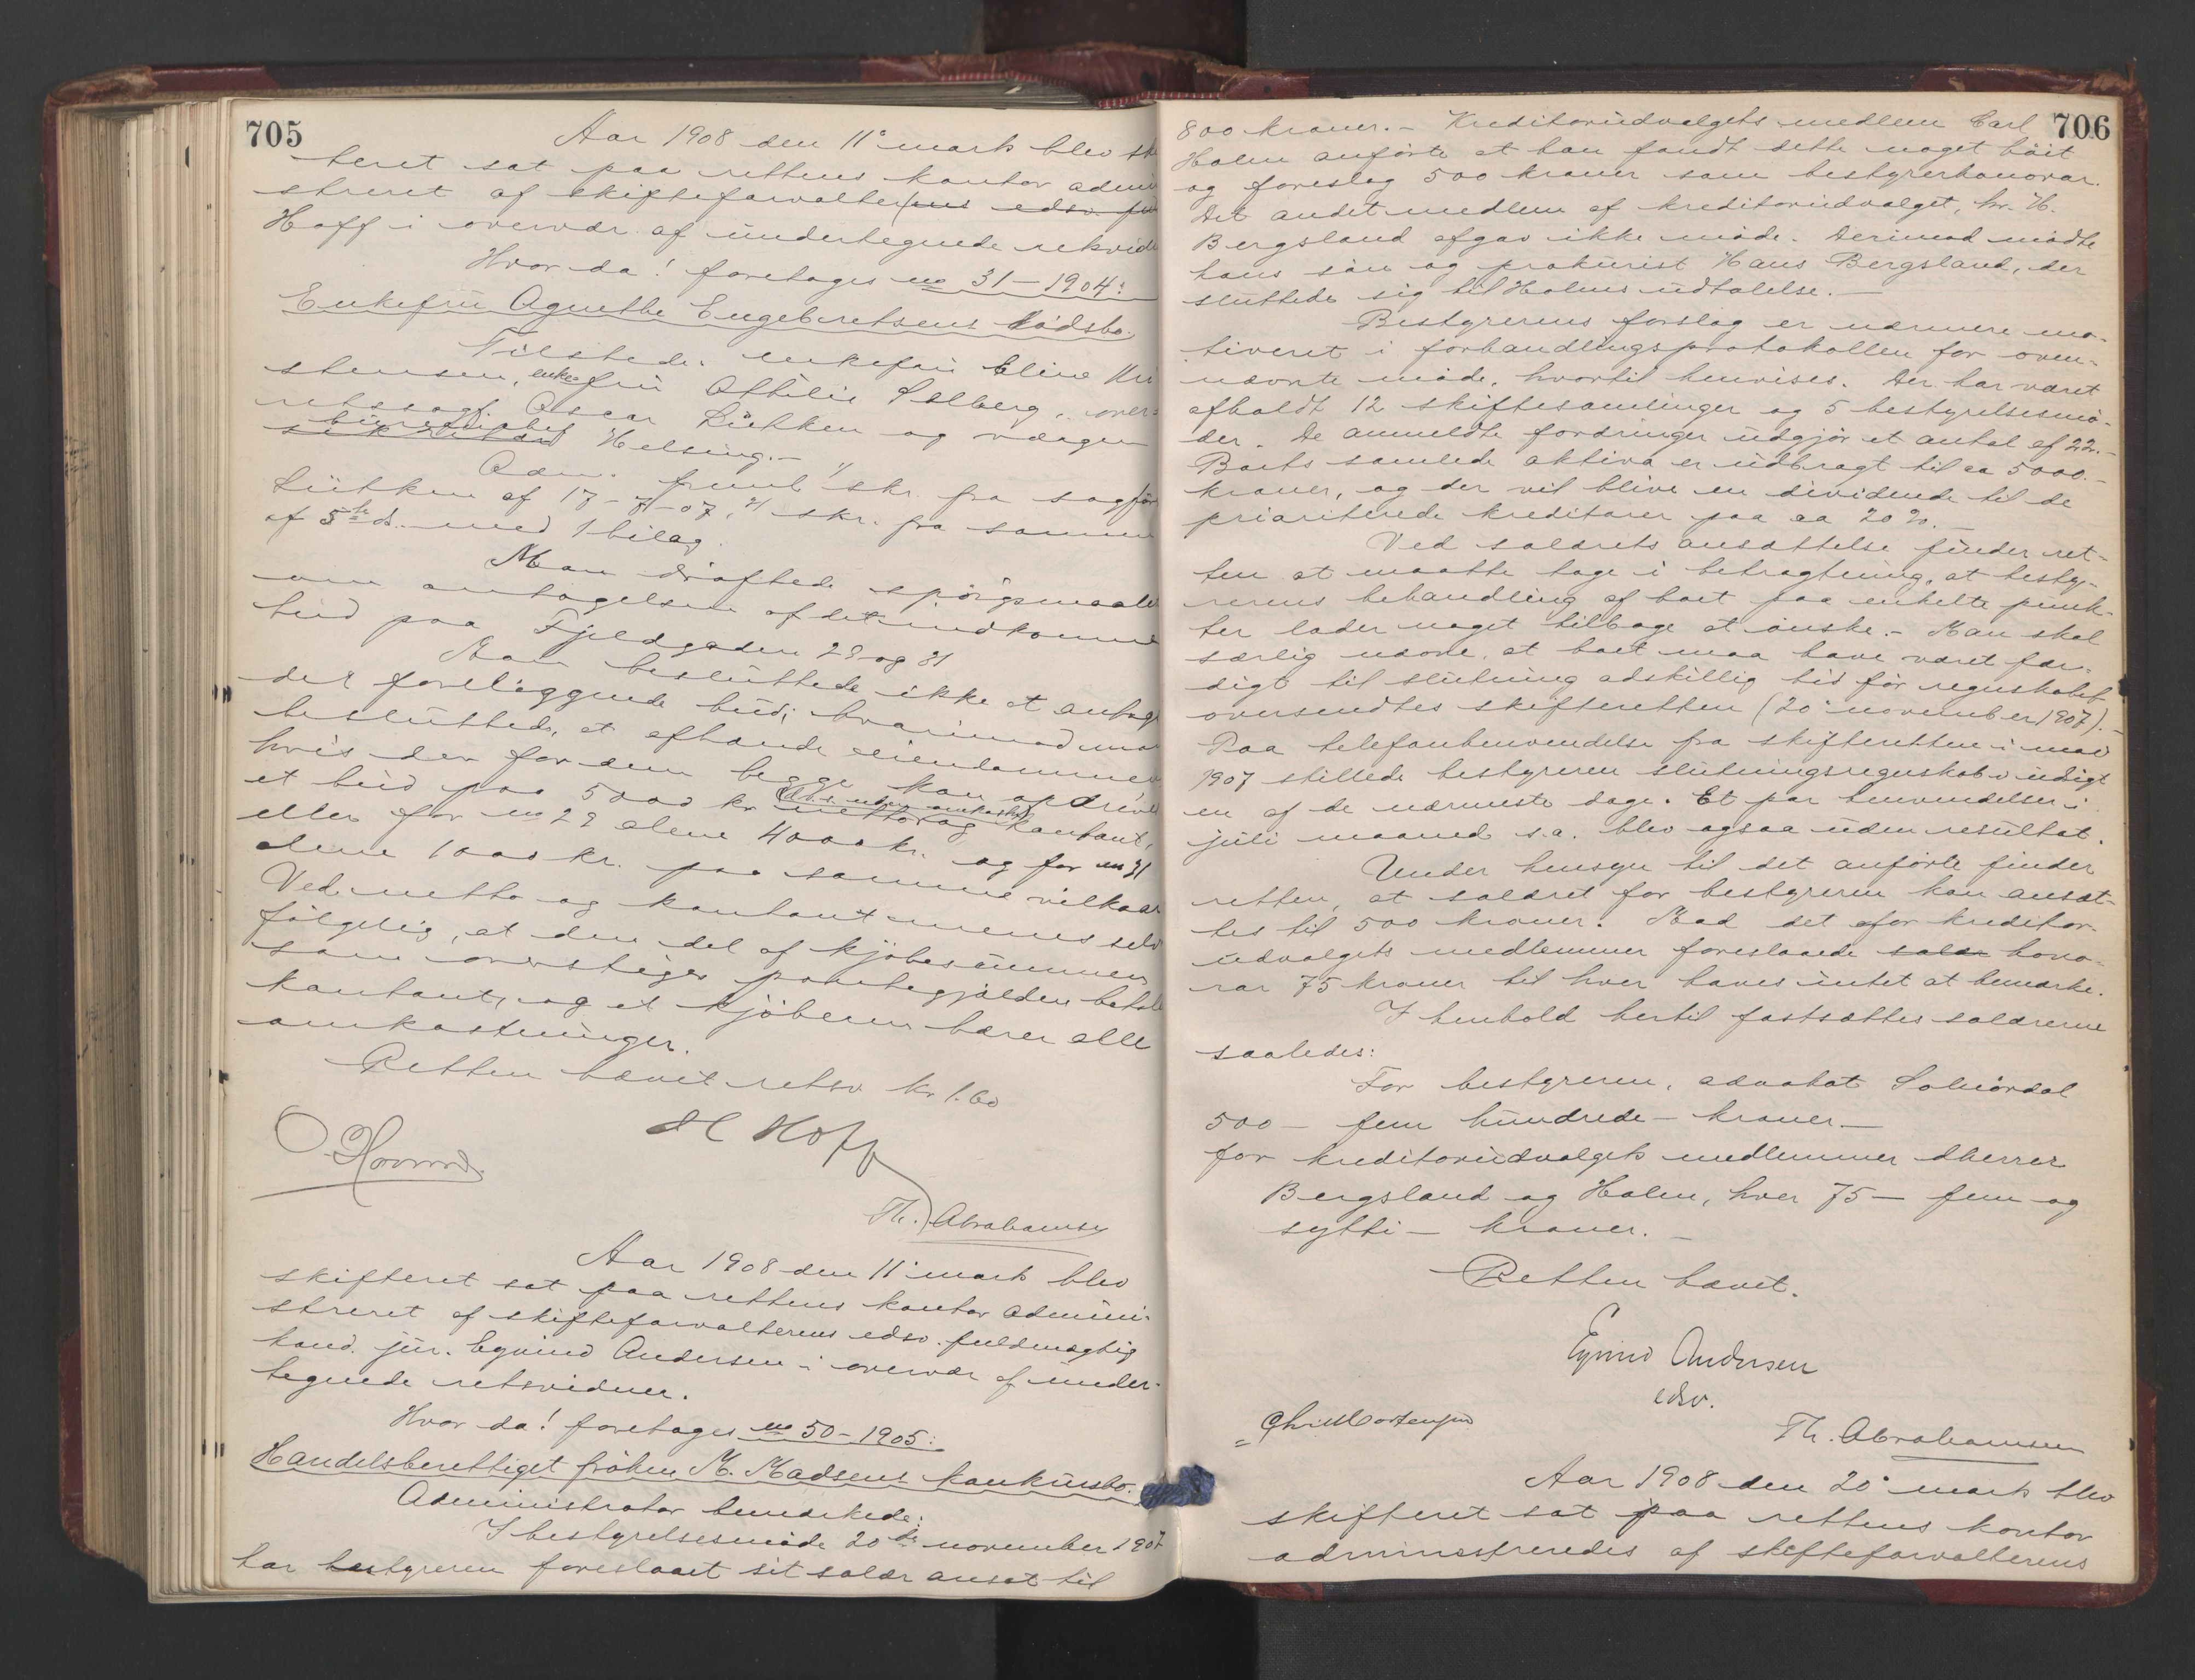 705
Aar 1908 den 11' marts blev ski
teret sat paa rettens kontor admi
streret af skifteforvalter(ens edsv. ful
Hoff i overvær af undertegnede retsvid
Hvor da! foretoges no 31 – 1904:
Enkefru Agnethe Engebretsens dödsbo.
Tilstede: enkefru Eline Kri
stensen, enkefru Othilie Solberg, over=
retssagf. Oscar Lütken og
Helsing. –
Adm. freml. 1/ skr. fra sagför
Lütken af 17 – 7 – 07, 2/ skr. fra samme
af 5te ds. med 1 bilag.
Man dröftede spörgsmaale
om antagelsen af det indkomne
bud paa Fjeldgaden 29 og 31
Man besluttede ikke at antage
det foreliggende bud; hvorimod man
besluttede, at afhænde eiendommen
hvis der for dem begge kan opdrives
et bud paa 5000 kr netto og kontant,
eller for no 29 alene 4000 kr. og for no 31
alene 1000 kr. paa samme vilkaar
Ved netto og kontant menes selv
fölgelig, at den del af kjöbesummen
som overstiger pantegjælden betal
kontant, og at kjöberen bærer alle
omkostninger.
Retten hævet retsv kr 1.60
H Hoff
Th. Abrahamsen
Aar 1908 den 11' marts blev
skifteret sat paa rettens kontor admini-
streret af skifteforvalterens edsv. fuldmægtig
kand. jur. Eyvind Andersen i overvær af under-
tegnede retsvidner.
Hvor da! foretoges no 50 – 1905:
Handelsberettiget fröken M. Madsens konkursbo.
Administrator bemerkede:
I bestyrelsesmöde 20de november 1907
har bestyreren foreslaaet sit salær ansat til
706
800 kroner. – Kreditorudvalgets medlem Carl
Holm anförte at han fandt dette noget höit
og foreslog 500 kroner som bestyrerhonorar.
Det andet medlem af kreditorudvalget, hr. H.
Bergsland afgav ikke möde. Derimod mödte
hans sön og prokurist Hans Bergsland, der
sluttede sig til Holms udtalelse. –
Bestyrerens forslag er nærmere mo-
tiveret i forhandlingsprotokollen for oven-
nævnte möde, hvortil henvises. Der har været
afholdt 12 skiftesamlinger og 5 bestyrelsesmö-
der. De anmeldte fordringer udgjör et antal af 22. –
Boets samlede aktiva er udbragt til ca 5000. –
kroner, og der vil blive en dividende til de
prioriterede kreditorer paa ca 20 %. –
Ved salærets ansættelse finder ret-
ten at maatte tage i betragtning, at besty-
rerens behandling af boet paa enkelte punk-
ter lader noget tilbage at önske. – Man skal
særlig nævne, at boet maa have været fær-
digt til slutning adskillig tid för regnskabet
oversendtes skifteretten (20' november 1907). –
Paa telefonhenvendelse fra skifteretten i mai
1907 stillede bestyreren slutningsregnskab i udsigt
en af de nærmeste dage. Et par henvendelser i
juli maaned s.a. blev ogsaa uden resultat.
Under hensyn til det anförte finder
retten, at salæret for bestyreren kan ansæt-
tes til 500 kroner. Mod det for kreditor-
udvalgets medlemmer foreslaaede salær hono-
rar 75 kroner til hver haves intet at bemærke.
I henhold hertil fastsættes salærerne
saaledes:
For bestyreren, advokat Solniördal
500 – fem hundrede – kroner. –
for kreditorudvalgets medlemmer dherrer
Bergsland og Holm, hver 75 – fem og
sytti – kroner. –
Retten hævet.
Eyvind Andersen
edsv.
Chr Mortensen
Th. Abrahamsen
Aar 1908 den 20' marts blev
skifteret sat paa rettens kontor
administreredes af skifteforvalterens